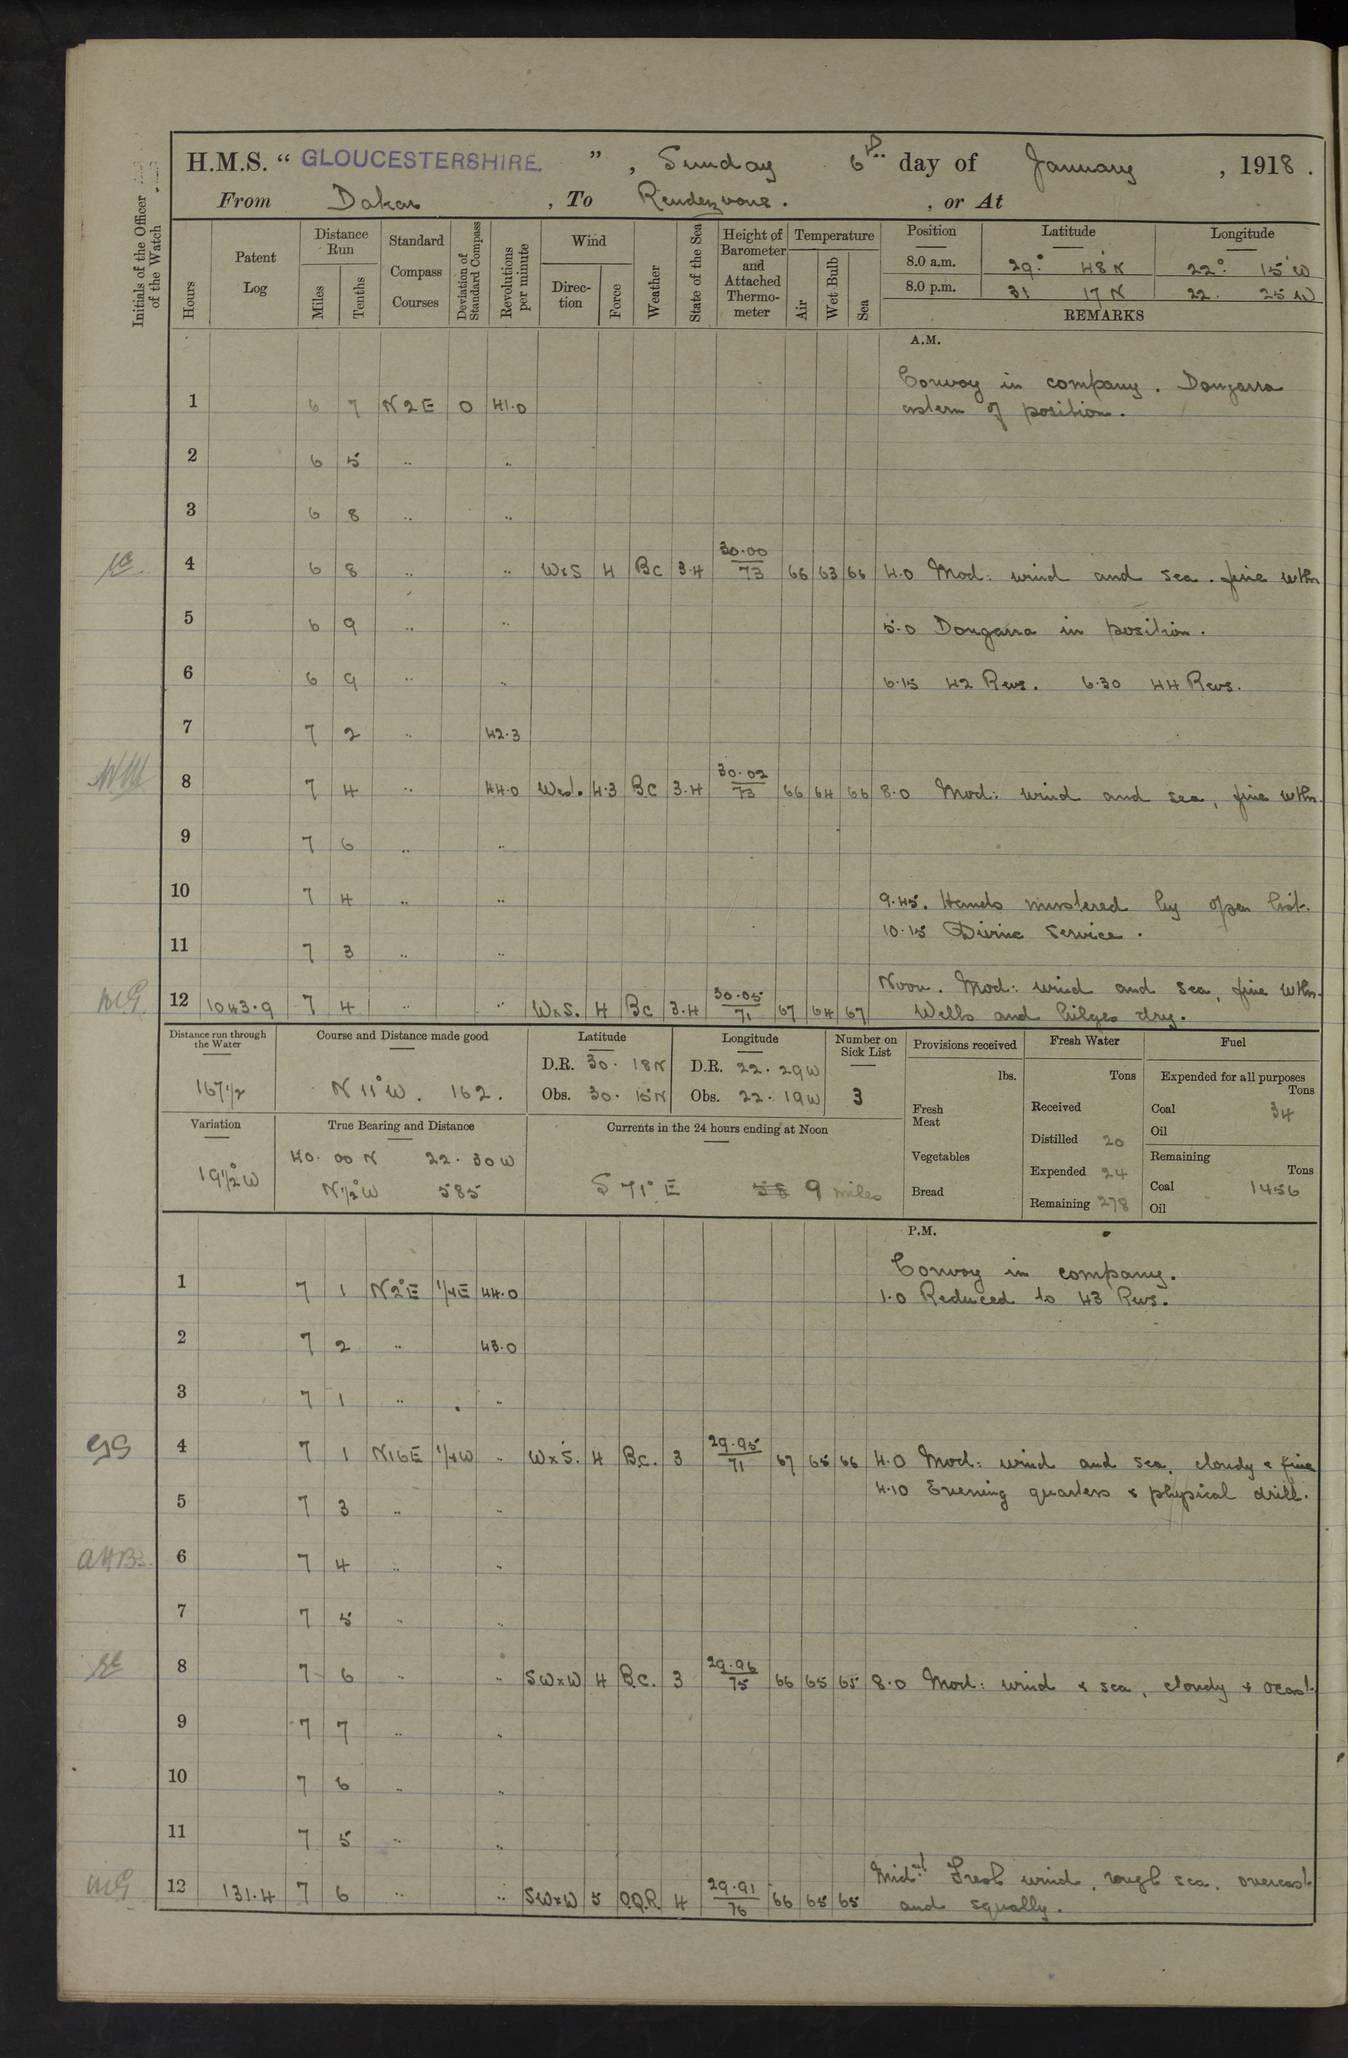 H.M.S. “ GLOUCESTERSHIRE. ” , Sunday 6th day of January , 1918 .
From Dakar , To Rendezvous . , or At
Initials of the Officer of the Watch
Hours
Patent Log
Distance Run
Miles
Tenths
Standard Compass Courses
Deviation of Standard Compass
Revolutions per minute
Wind
Direction
Force
Weather
State of the Sea
Height of Barometer and Attached Thermometer
Temperature
Air
Wet Bulb
Sea
Position Latitude Longitude
8.0 a.m. 29° 48' N 22° 15' W
8.0 p.m. 31 17 N 22. 25 W
REMARKS
A.M.
Convoy in company. Dongarra
1 6 7 N 2 E 0 41.0 astern of position.
2 6 5 .. ..
3 6 8 .. ..
4 6 8 .. .. WxS 4 BC 3.4 30.00/73 66 63 66 4.0 Mod: wind and sea. fine wthr
5 6 9 .. .. 5.0 Dongarra in position.
6 6 9 .. .. 6.15 42 Revs. 6.30 44 Revs.
7 7 2 .. 42.3
8 7 4 .. 44.0 West. 4.3 BC 3.4 30.02/73 66 64 66 8.0 Mod: wind and sea, fine wthr.
9 7 6 .. ..
10 7 4 .. .. 9.45. Hands mustered by open list.
10.15 Divine Service.
11 7 3 .. ..
Noon. Mod: wind and sea, fine wthr.
MG 12 1043.9 7 4 .. .. WxS. 4 BC 3.4 30.05/71 67 64 67 Wells and bilges dry.
Distance run through the Water
167 1/2
Course and Distance made good
N 11° W. 162.
Latitude
D.R. 30. 18 N
Obs. 30. 15 N
Longitude
D.R. 22. 29 W
Obs. 22. 19 W
Number on Sick List
3
Variation
19 1/2° W
True Bearing and Distance
40. 00 N 22. 30 W
N 1/2° W 585
Currents in the 24 hours ending at Noon
S 71° E 9 miles
Provisions received
lbs.
Fresh Meat
Vegetables
Bread
Fresh Water
Tons
Received
Distilled 20
Expended 24
Remaining 278
Fuel
Expended for all purposes
Tons
Coal 34
Oil
Remaining
Tons
Coal 1456
Oil
P.M.
Convoy in company.
1 7 1 N 2° E 1/4 E 44.0 1.0 Reduced to 43 Revs.
2 7 2 .. 43.0
3 7 1 .. . ..
GS 4 7 1 N16E 1/4 W .. WxS. 4 B.C. 3 29.95/71 67 65 66 4.0 Mod: wind and sea, cloudy & fine
4.10 Evening quarters & physical drill.
5 7 3 .. ..
6 7 4 .. ..
7 7 5 .. ..
8 7 6 .. .. SWxW 4 B.C. 3 29.96/75 66 65 65 8.0 Mod: wind & sea, cloudy & ocast.
9 7 7 .. ..
10 7 6 .. ..
11 7 5 .. ..
Midnt. Fresh wind, rough sea, overcast
MG 12 131.4 7 6 .. .. SWxW 5 O.Q.R. 4 29.91/76 66 65 65 and squally.